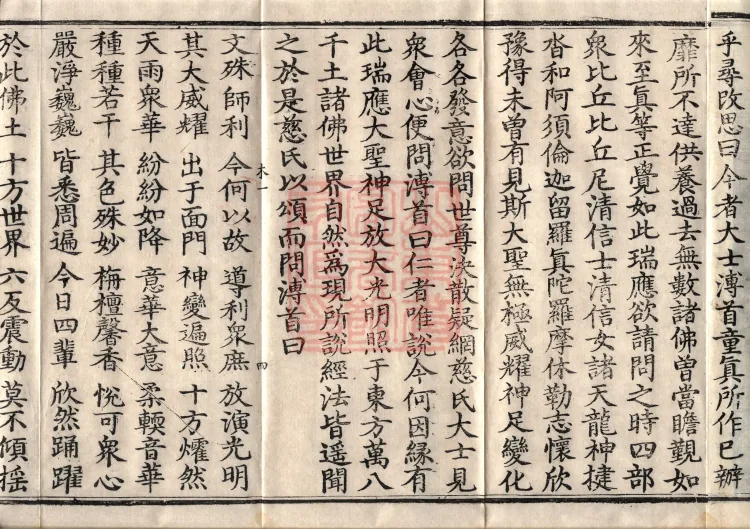 乎尋改思曰今者大士溥首童眞所作已辦
靡所不達供養過去無數諸佛曽當瞻覲如
來至眞等正覺如此瑞應欲請問之時四部
衆比丘比丘尼清信士清信女諸天龍神揵
沓和阿須倫迦留羅眞陀羅摩休勒志懷欣
豫得未曽有見斯大聖無極威耀神足變化
各各發意欲問世尊决散疑網慈氏大士見
衆會心便問溥首曰仁者唯說今何因緣有
此瑞應大聖神足放大光明照于東方萬八
千土諸佛世界自然爲現所說經法皆遥聞
之於是慈氏以頌而問溥首曰
文殊師利 今何以故 導利衆庶 放演光明
其大威耀 出于面門 神變遍照 十方㸌然
天雨衆華 紛紛如降 意華大意 柔輭音華
種種若干 其色殊妙 栴檀馨香 悅可衆心
嚴淨巍巍 皆悉周遍 今日四輩 欣然踊躍
於此佛土 十方世界 六反震動 莫不傾揺